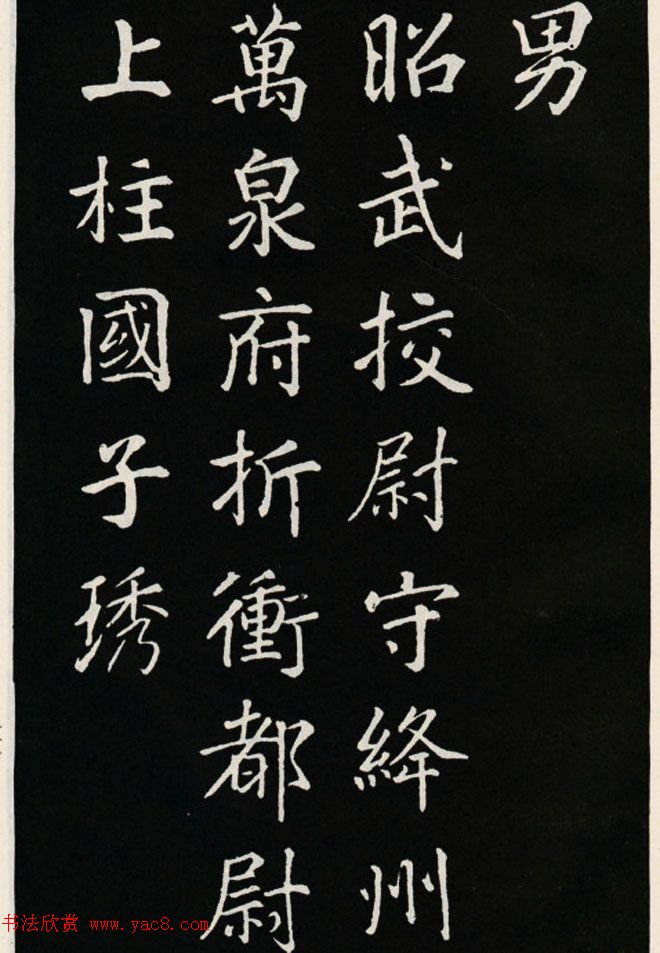 男
昭武挍尉守絳州
萬泉府折衝都尉
上柱國子琇
书法欣赏 www.yac8.com